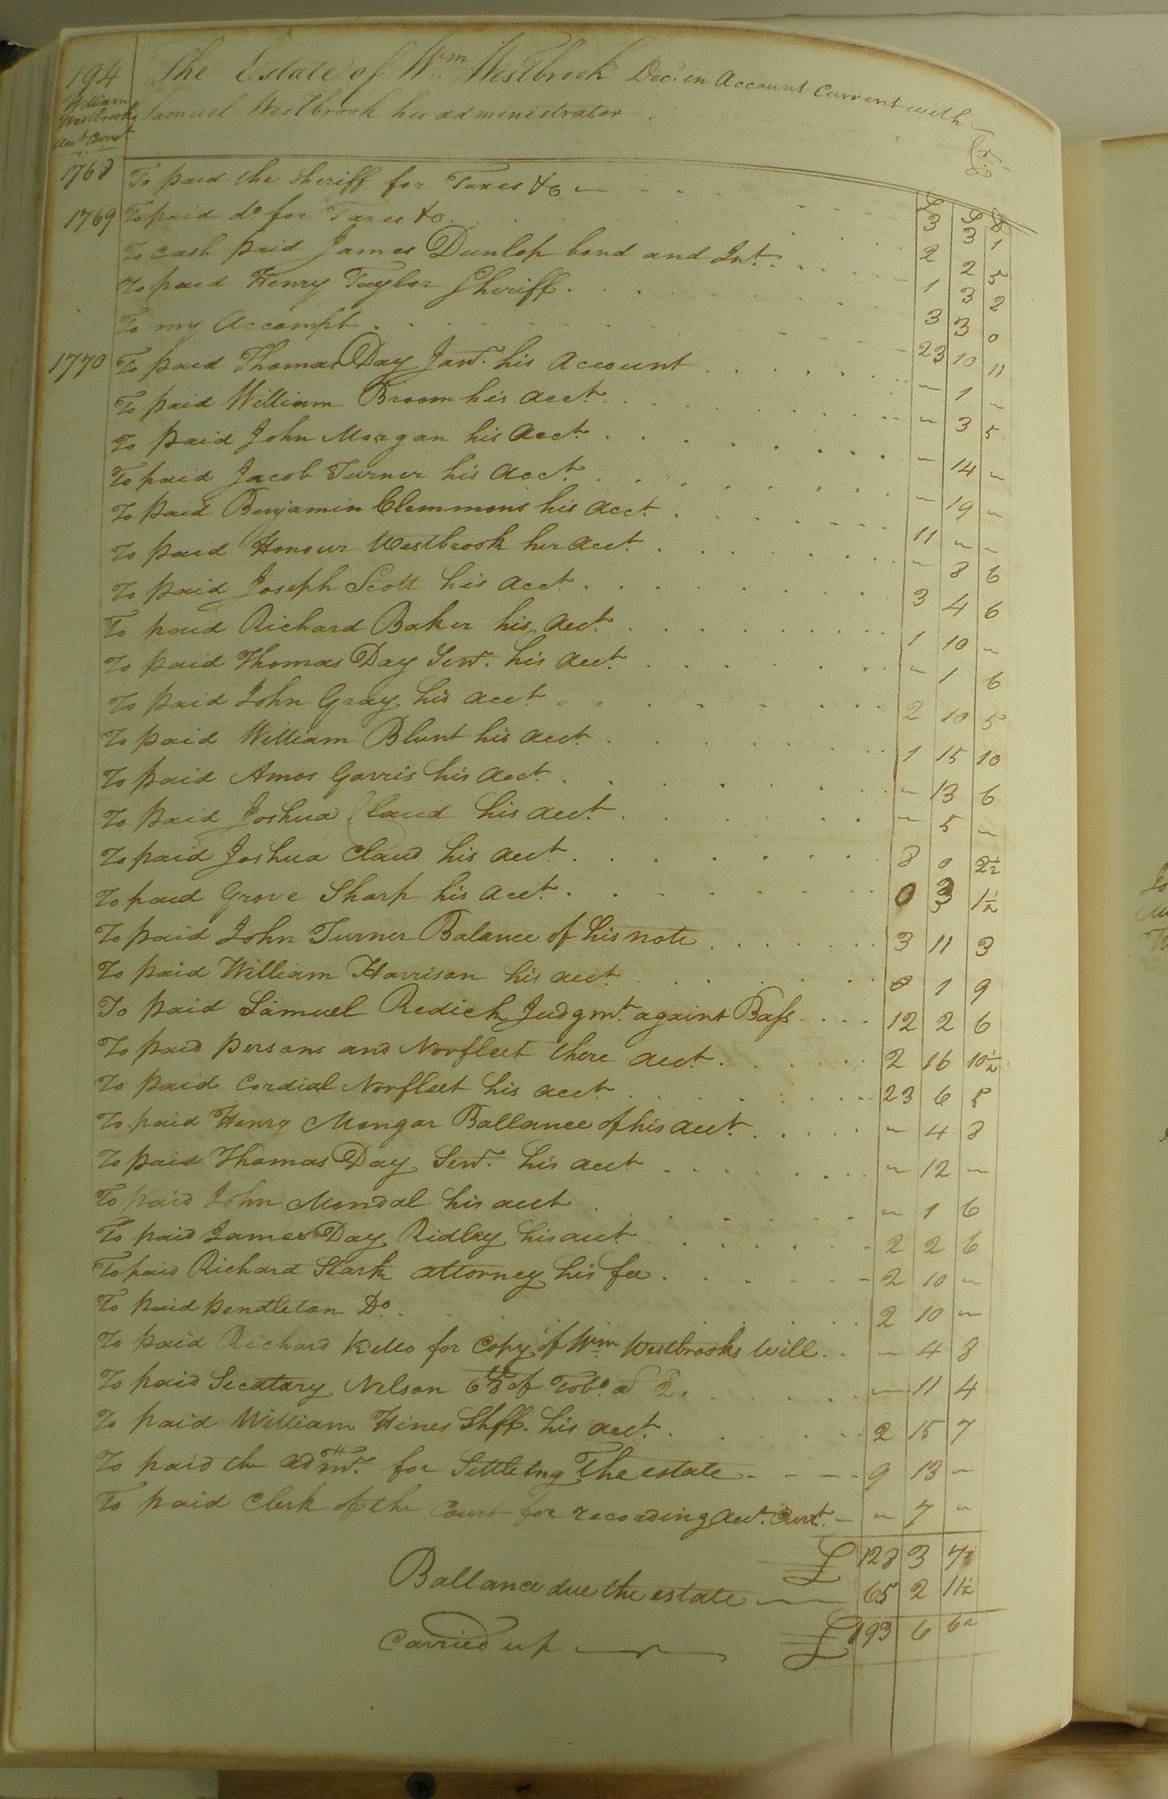 194 The Estate of Wm Westbrook Decd. in Account Current with
William Westbrooks Acct Currt
Samuel Westbrook his administrator
Dr
£ S D
1768 To paid the Sheriff for Taxes &c 3 3 1
1769 To paid do for Taxes &c 2 2 5
To cash paid James Dunlop bond and Int. 1 3 2
To paid Henry Taylor Sheriff 3 3 0
To my Accompt 23 10 11
1770 To paid Thomas Day Junr. his Account - 1 -
To paid William Broom his acct. - 3 5
To paid John Morgan his Acct. - 14 -
To paid Jacob Turner his Acct. - 19 -
To paid Benjamin Clemmons his Acct. 11 - -
To paid Honour Westbrook her Acct. - 8 6
To paid Joseph Scott his acct. 3 4 6
To paid Richard Baker his Acct. 1 10 -
To paid Thomas Day Senr. his acct. - 1 6
To paid John Gray his acct 2 10 5
To paid William Blunt his acct. 1 15 10
To paid Amos Garris his Acct. - 13 6
To paid Joshua Claud his Acct. - 5 -
To paid Joshua Claud his acct. 8 0 2½
To paid Grove Sharp his acct. 0 3 1½
To paid John Turner Balance of his note 3 11 3
To paid William Harrison his acct. 0 1 9
To paid Samuel Redick Judgmt. againt Bass 12 2 6
To paid Persons and Norfleet there acct. 2 16 10½
To paid Cordial Norfleet his acct. 23 6 5
To paid Henry Mongar Ballance of his acct. - 4 8
To paid Thomas Day Senr. his acct - 12 -
To paid John Mondal his acct - 1 6
To paid James Day Ridley his acct 2 2 6
To paid Richard Stark attorney his fee 2 10 -
To paid Pendleton Do. 2 10 -
To paid Richard Kello for Copy of Wm Westbrooks Will - 4 8
To paid Secatary Nelson of Tobo. - 11 4
To paid William Hines Shff. his acct. 2 15 7
To paid the admr. for Settleing The estate 9 13 -
To paid Clerk of the Court for recording Acct. Currt. - 7 -
£ 128 3 7
Ballance due the estate 65 2 11½
Carried up £ 193 6 6